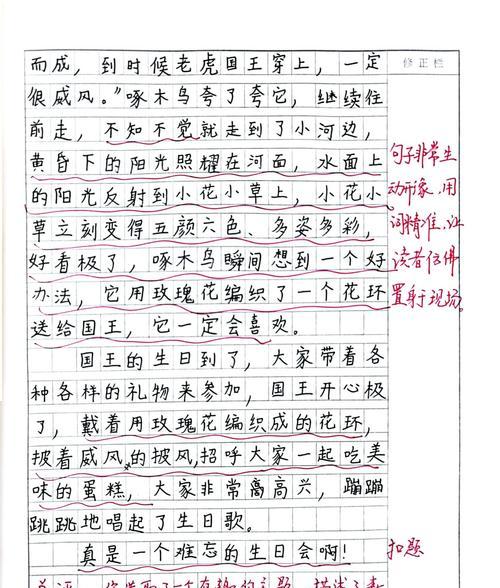 修正栏
而成，到时候老虎国王穿上，一定
很威风。”啄木鸟夸了夸它，继续往
前走，不知不觉就走到了小河边，
黄昏下的阳光照耀在河面，水面上
的阳光反射到小花小草上，小花小
草立刻变得五颜六色、多姿多彩，
好看极了，啄木鸟瞬间想到一个好
办法，它用玫瑰花编织了一个花环
送给国王，它一定会喜欢。
国王的生日到了，大家带着各
种各样的礼物来参加，国王开心极
了，戴着用玫瑰花编织成的花环，
披着威风的披风，招呼大家一起吃美
味的蛋糕，大家非常高高兴，蹦蹦
跳跳地唱起了生日歌。
真是一个难忘的生日会啊！
句子非常生
动形象，用
词精准，让
读者仿佛
置身于现场。
扣题